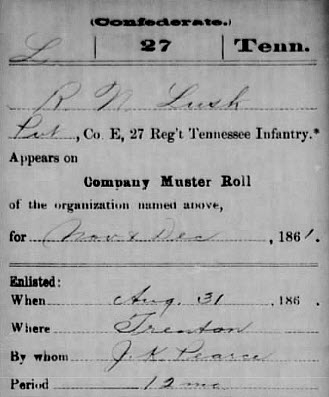 (Confederate.)
L | 27 | Tenn.
R N Lusk
Pvt, Co. E, 27 Reg't Tennessee Infantry.*
Appears on
Company Muster Roll
of the organization named above,
for Nov & Dec, 1861.
Enlisted:
When Aug. 31, 186 .
Where Trenton
By whom J. K. Pearce
Period 12 mo